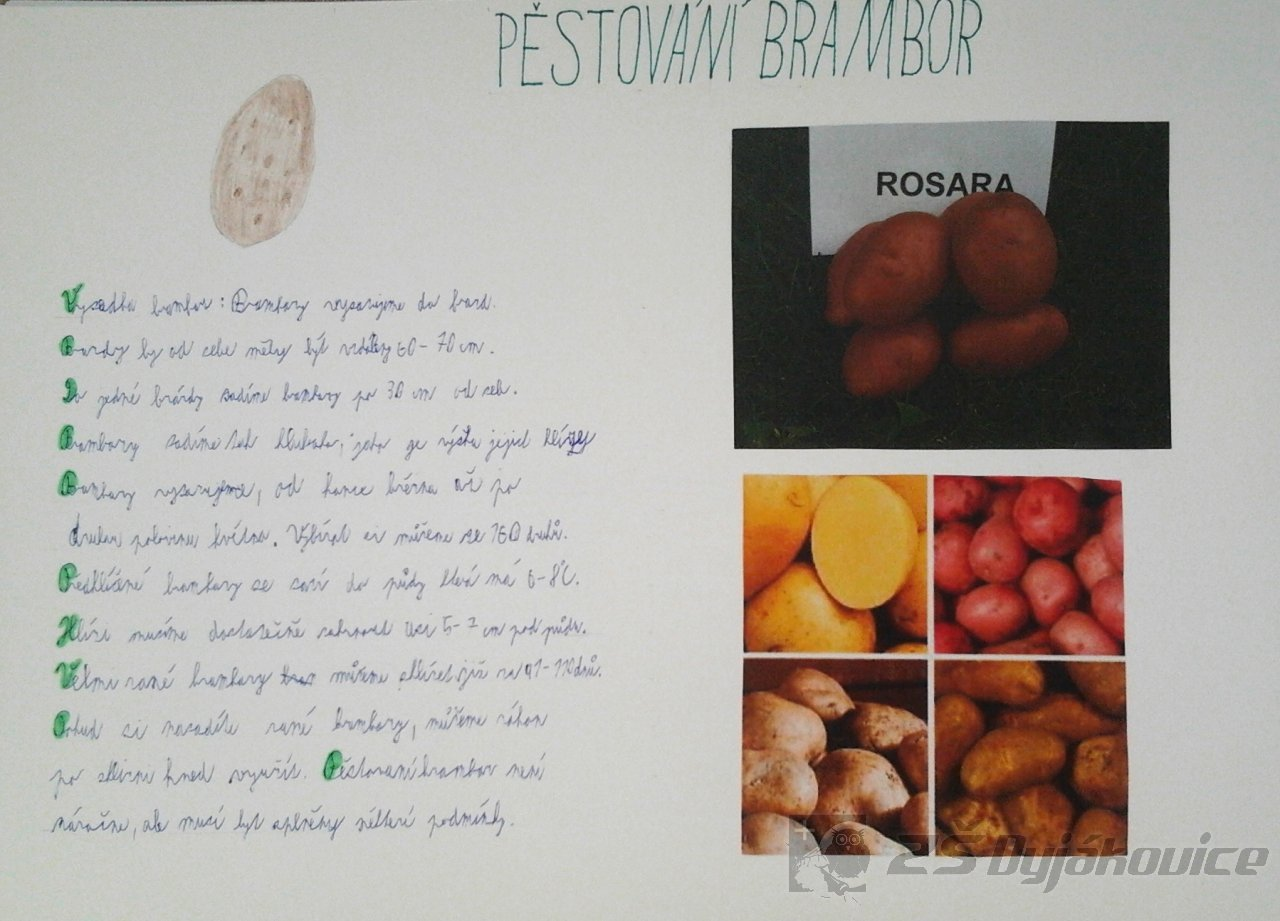 PĚSTOVÁNÍ BRAMBOR
ROSARA
Vysadba brambor: Brambory vysazujeme do brazd.
Brazdy by od sebe měly být vzdáleny 60-70 cm.
Do jedné brázdy sadíme brambory po 30 cm od seb.
Brambory sadíme tak hluboko, jako je výška jejich hlízy
Brambory vysazujeme, od konce března až po
druhou polovinu května. Vybírat si můžeme ze 160 druhů.
Předklíčené brambory se sází do půdy která má 6-8°C.
Hlízi musíme dostatečně zahrnout asi 5-7 cm pod půdu.
Velmi rané brambory můžeme sklízet již za 91-110 dnů.
Pokud si nasadíte rané brambory, můžeme záhon
po sklizni hned využít. Pěstovaní brambor není
náročne, ale musí byt splněny některé podmínky.
ZŠ Dyjákovice